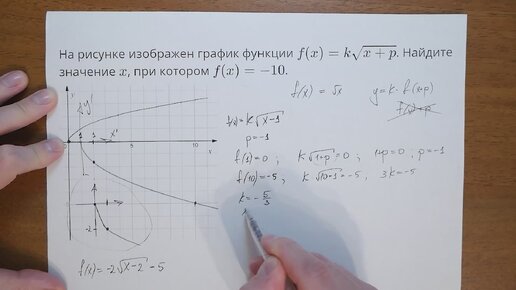 На рисунке изображен график функции f(x) = k√(x + p). Найдите
значение x, при котором f(x) = −10.
f(x) = √x    y = k · f(x+p)
f(x)+p
y
y'
x'
1 1
0 5 10 x
-2
f(x) = k√(x-1)
p = -1
f(1) = 0 ; k√(1+p) = 0 ; 1+p = 0 ; p = -1
f(10) = -5 ; k√(10-1) = -5 , 3k = -5
k = - 5/3
f(x) = -2√(x-2) - 5